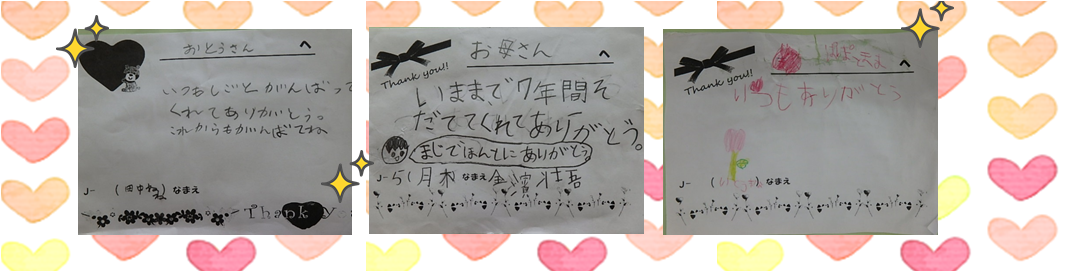 おとうさん へ
いつもしごとがんばって
くれてありがとう。
これからもがんばてね
J- ( ) なまえ
Thank You
お母さん へ
Thank you!!
いままで7年間そ
だててくれてありがとう。
まじでほんとにありがとう
J-5(月木) なまえ
へ
Thank you!!
いつもありがとう
J- ( ) なまえ